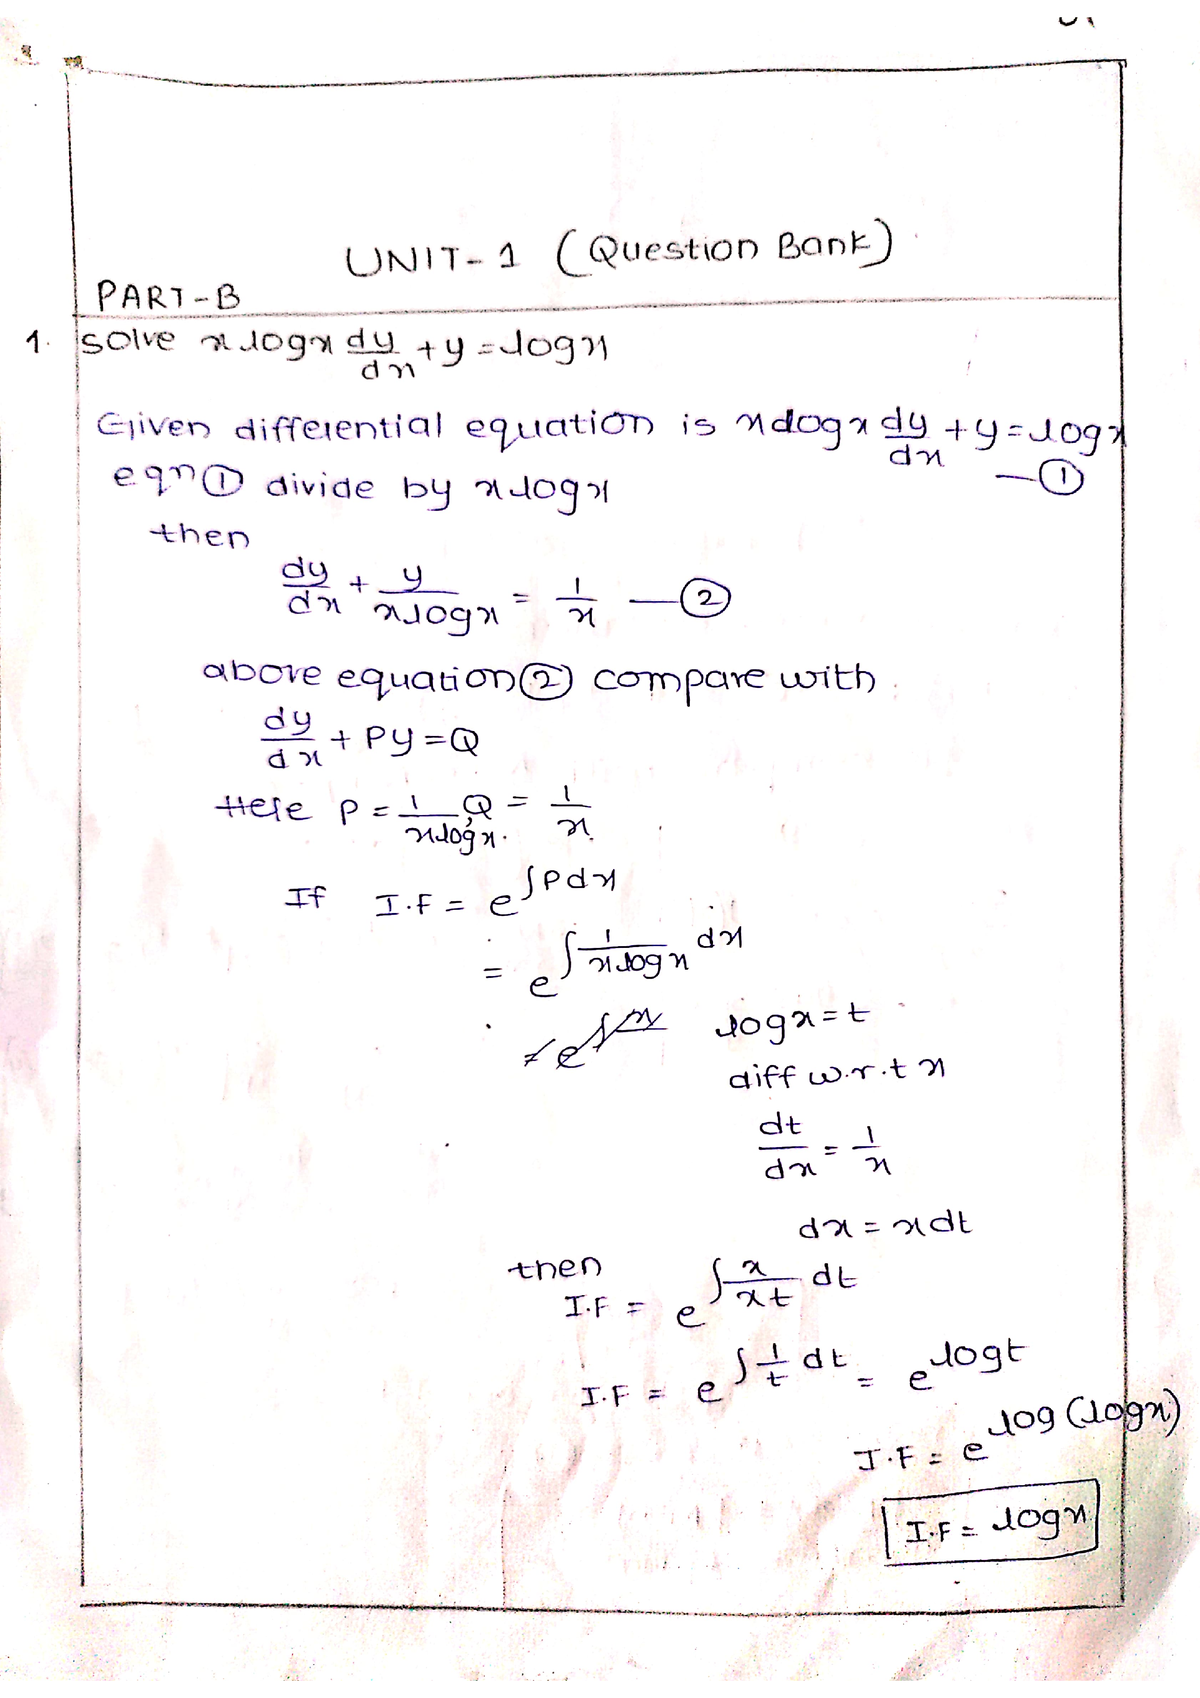 UNIT-1 (Question Bank)
PART-B
1. solve x log x dy/dx + y = log x
Given differential equation is x log x dy/dx + y = log x —①
eqn ① divide by x log x
then
dy/dx + y/(x log x) = 1/x —②
above equation ② compare with
dy/dx + Py = Q
Here P = 1/(x log x), Q = 1/x.
If I.F = e^∫P dx
= e^∫ 1/(x log x) dx
log x = t
diff w.r.t x
dt/dx = 1/x
dx = x dt
then
I.F = e^∫ x/(xt) dt
I.F = e^∫ 1/t dt = e^log t
I.F = e^log (log x)
I.F = log x